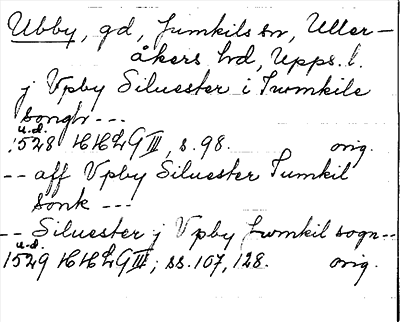 Ubby, gd, Jumkils sn, Uller-
åkers hd, Upps. l.
j Vpby Siluester i Iwmkile
songh ---
u.d.
1528 HHLG III, s. 98. orig.
-- aff Vpby Siluester Iumkil
sonk ---
-- Siluester j Vpby Jwmkil sogn --
u.d.
1529 HHLG III; ss. 107, 128. orig.